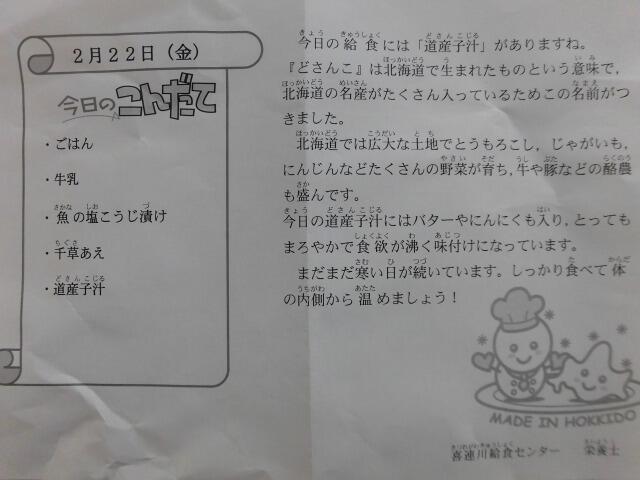 2月22日(金)
今日のこんだて
・ごはん
・牛乳
・魚の塩こうじ漬け
・千草あえ
・道産子汁
今日の給食には「道産子汁」がありますね。
『どさんこ』は北海道で生まれたものという意味で,
北海道の名産がたくさん入っているためこの名前がつ
きました。
北海道では広大な土地でとうもろこし,じゃがいも,
にんじんなどたくさんの野菜が育ち,牛や豚などの酪農
も盛んです。
今日の道産子汁にはバターやにんにくも入り,とっても
まろやかで食欲が沸く味付けになっています。
まだまだ寒い日が続いています。しっかり食べて体
の内側から温めましょう!
MADE IN HOKKIDO
喜連川給食センター 栄養士